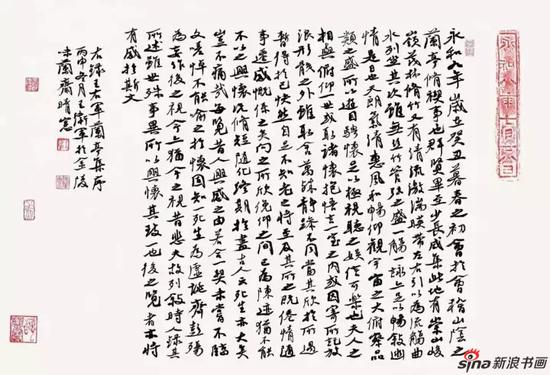 永和九年歲在癸丑暮春之初會於會稽山陰之
蘭亭脩稧事也群賢畢至少長咸集此地有崇山峻
嶺茂林脩竹又有清流激湍映帶左右引以為流觴曲
水列坐其次雖無絲竹管弦之盛一觴一詠亦足以暢敘幽
情是日也天朗氣清惠風和暢仰觀宇宙之大俯察品
類之盛所以遊目騁懷足以極視聽之娛信可樂也夫人之
相與俯仰一世或取諸懷抱悟言一室之內或因寄所託放
浪形骸之外雖趣舍萬殊靜躁不同當其欣於所遇
暫得於己快然自足不知老之將至及其所之既倦情隨
事遷感慨係之矣向之所欣俛仰之間已為陳迹猶不能
不以之興懷況脩短隨化終期於盡古人云死生亦大矣
豈不痛哉每覽昔人興感之由若合一契未嘗不臨
文嗟悼不能喻之於懷固知一死生為虛誕齊彭殤
為妄作後之視今亦猶今之視昔悲夫故列敘時人錄其
所述雖世殊事異所以興懷其致一也後之覽者亦將
有感於斯文
右錄王右軍蘭亭集序
丙申冬月王衛軍於金陵
味蘭齋晴窗
sina新浪书画